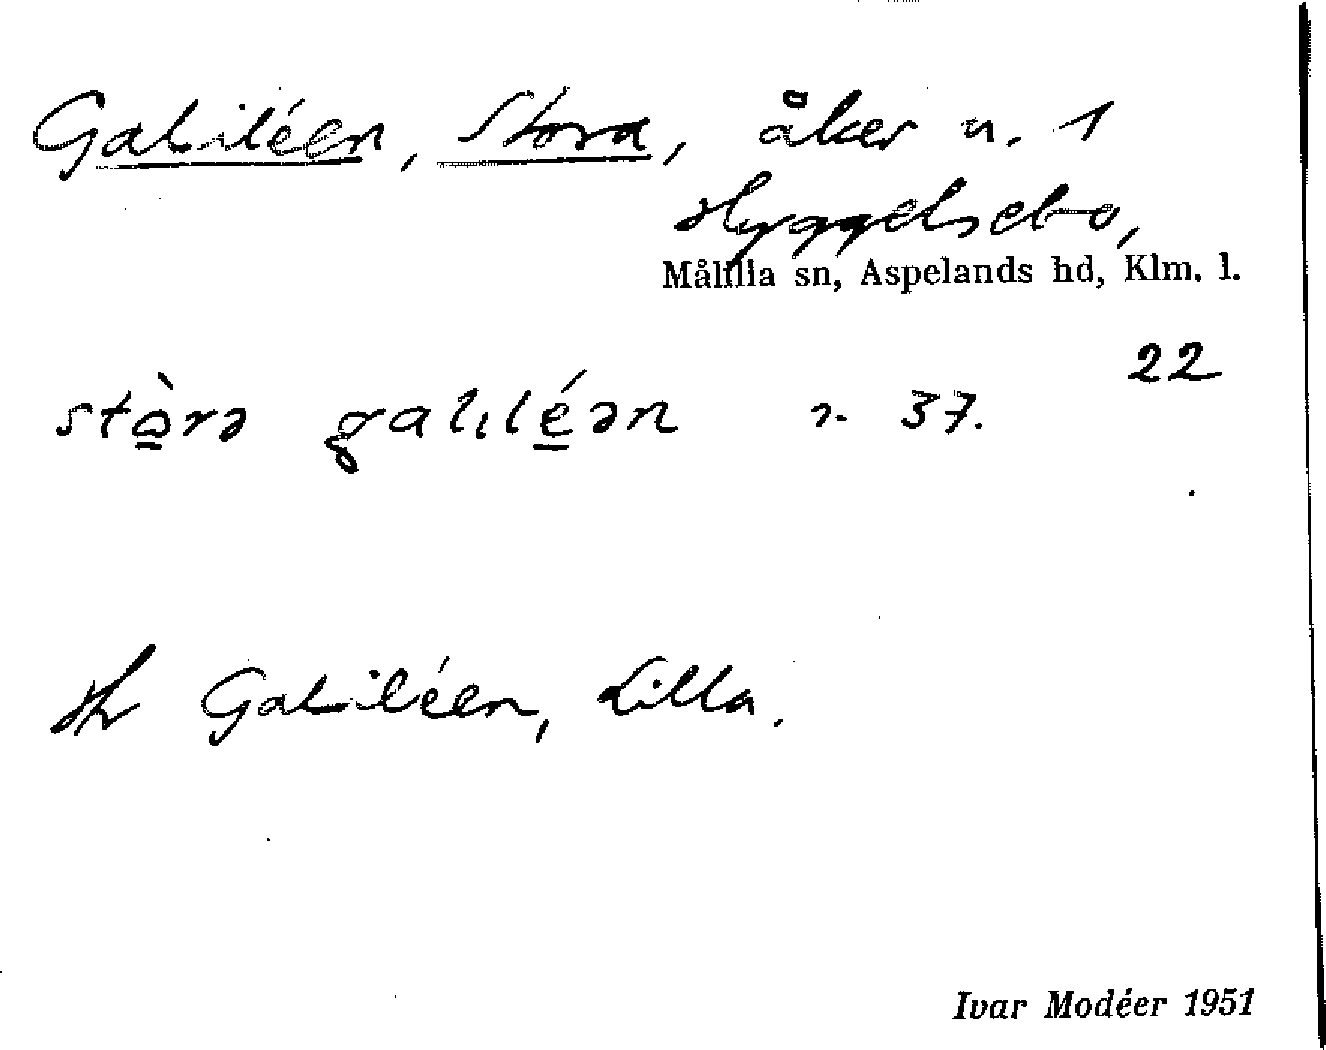 Galiléen, Stora, åker n. 1
Hyggelsebo,
Målilla sn, Aspelands hd, Klm. l.
22
stò̱rə galılé̱ən r. 37.
Hr Galiléen, Lilla.
Ivar Modéer 1951